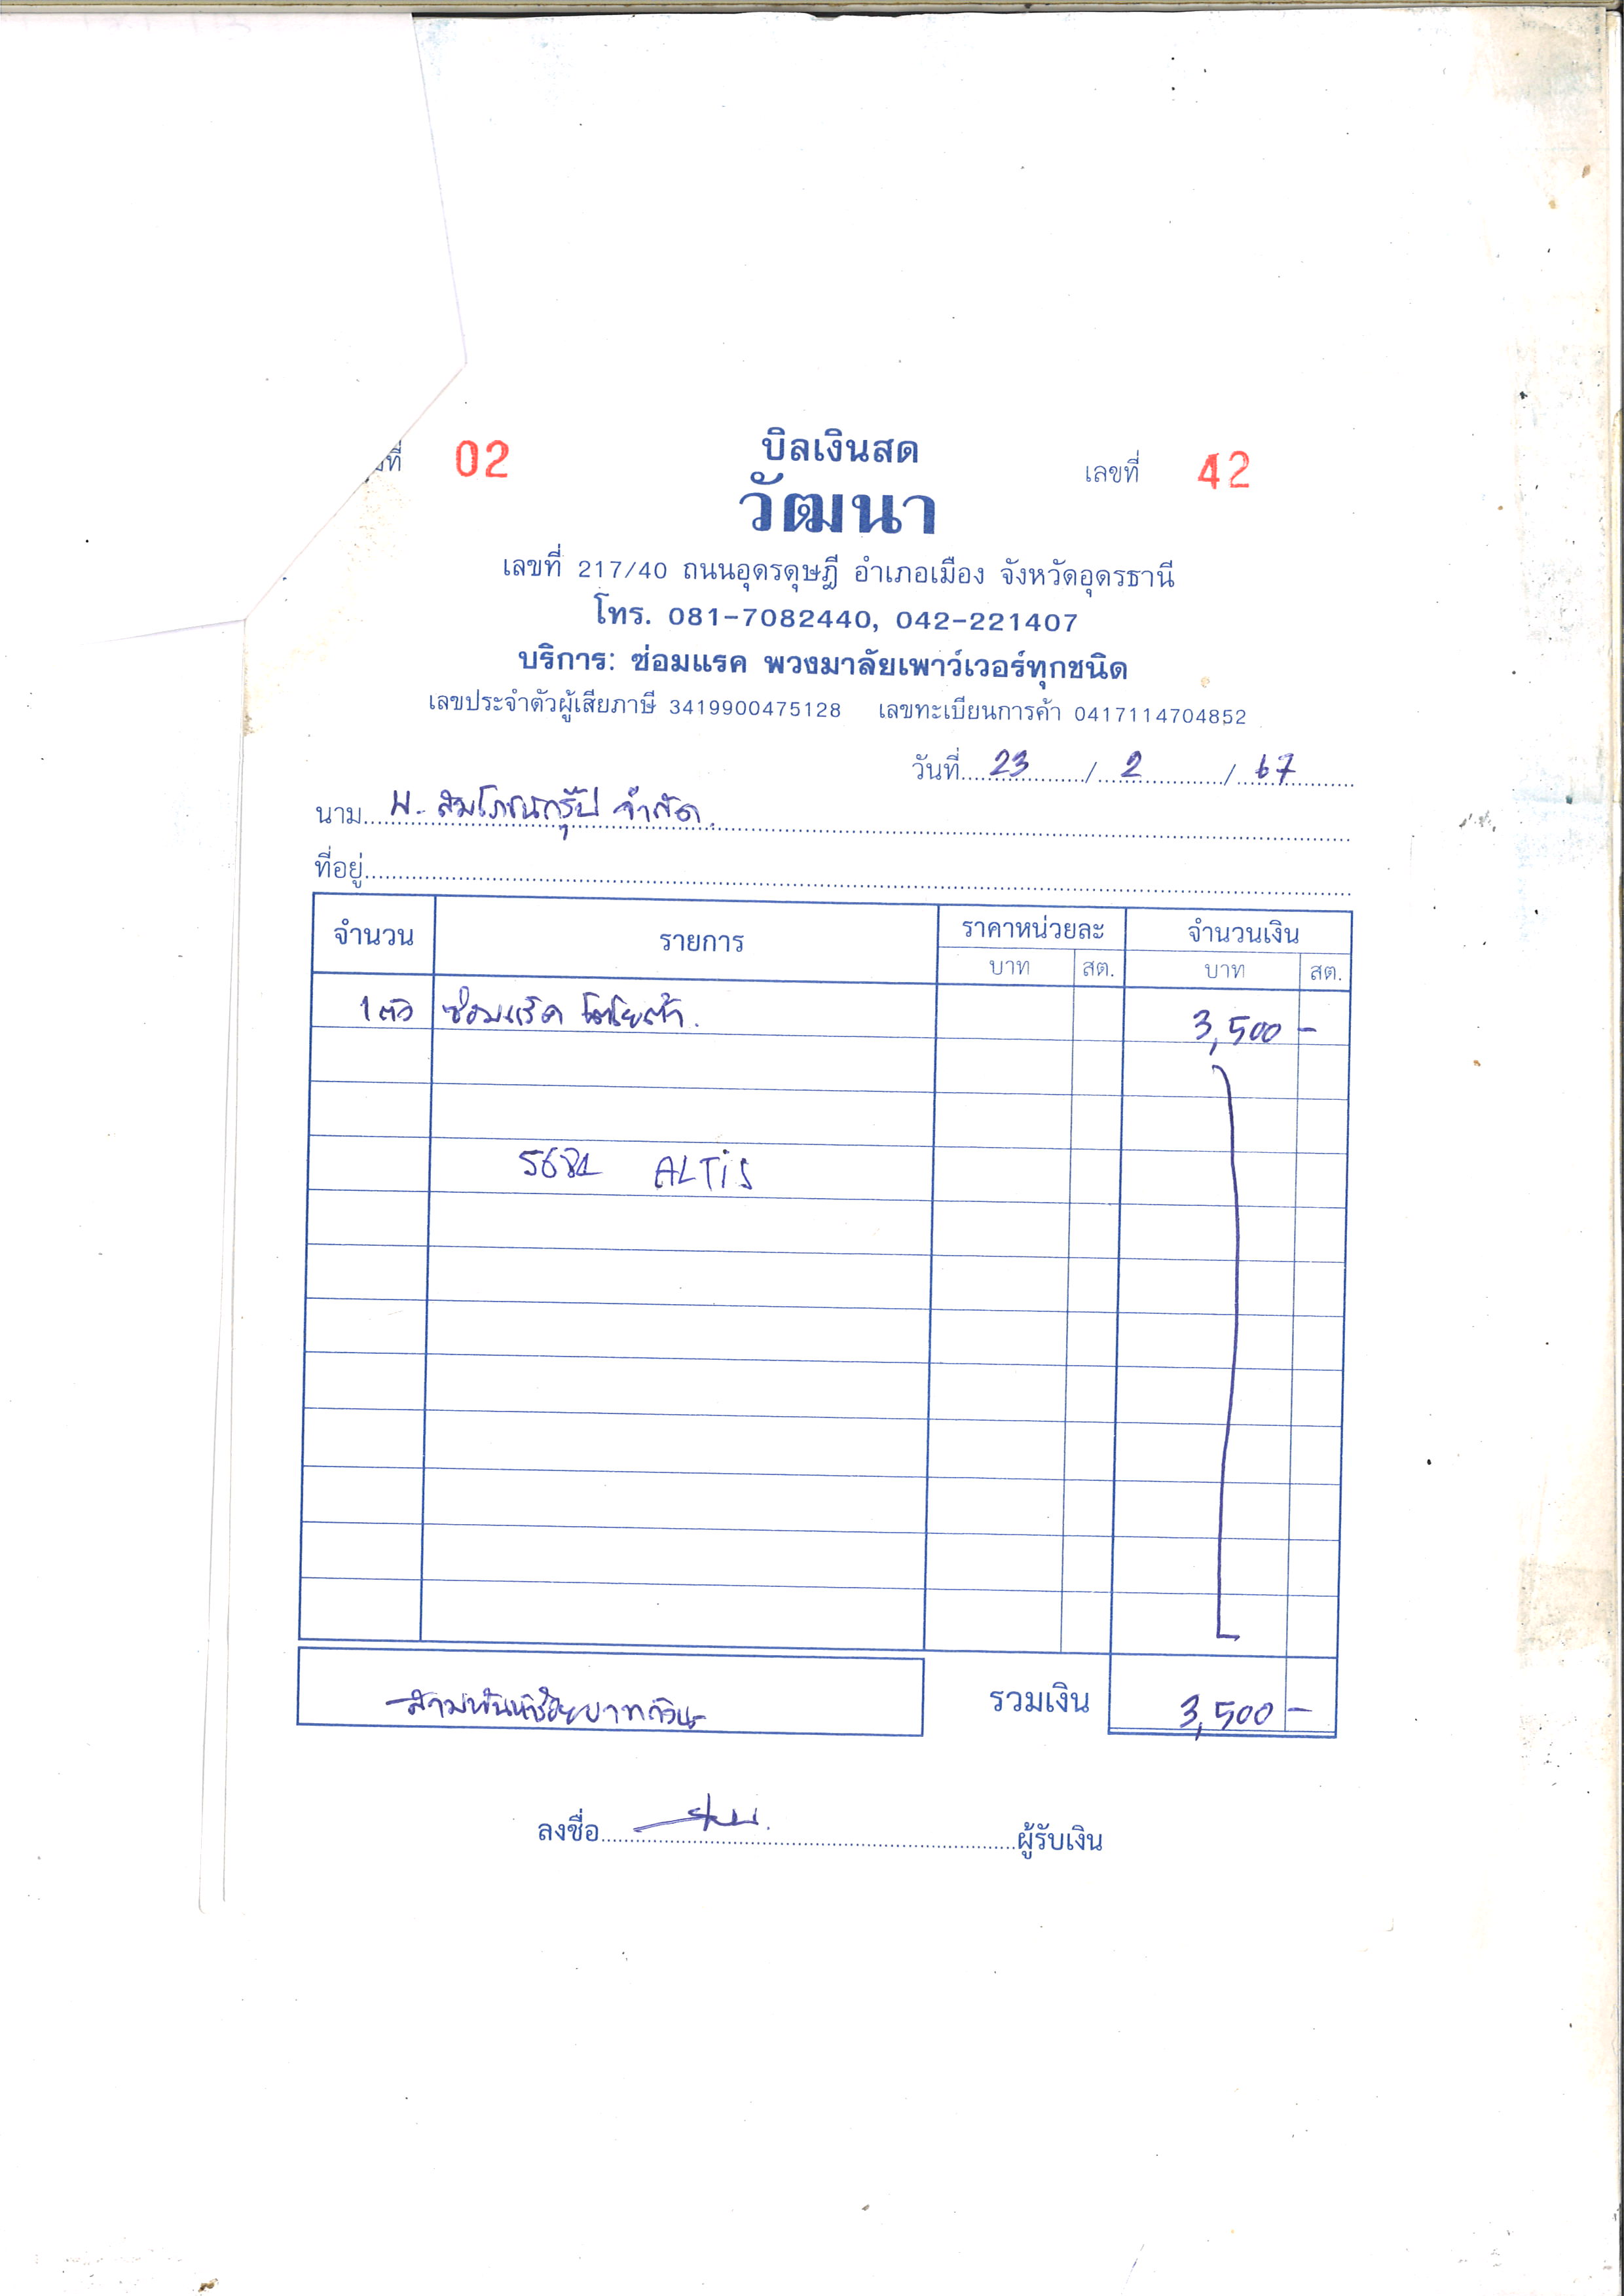 ที่ 02
บิลเงินสด
เลขที่ 42
วัฒนา
เลขที่ 217/40 ถนนอุดรดุษฎี อำเภอเมือง จังหวัดอุดรธานี
โทร. 081-7082440, 042-221407
บริการ: ซ่อมแรค พวงมาลัยเพาว์เวอร์ทุกชนิด
เลขประจำตัวผู้เสียภาษี 3419900475128 เลขทะเบียนการค้า 0417114704852
วันที่ 23 / 2 / 67
นาม จำกัด.
ที่อยู่
จำนวน รายการ ราคาหน่วยละ จำนวนเงิน
บาท สต. บาท สต.
1 ตัว ซ่อมแร็ค โตโยต้า. 3,500 -
ALTiS
-สามพันห้าร้อยบาทถ้วน-
รวมเงิน 3,500 -
ลงชื่อ ผู้รับเงิน